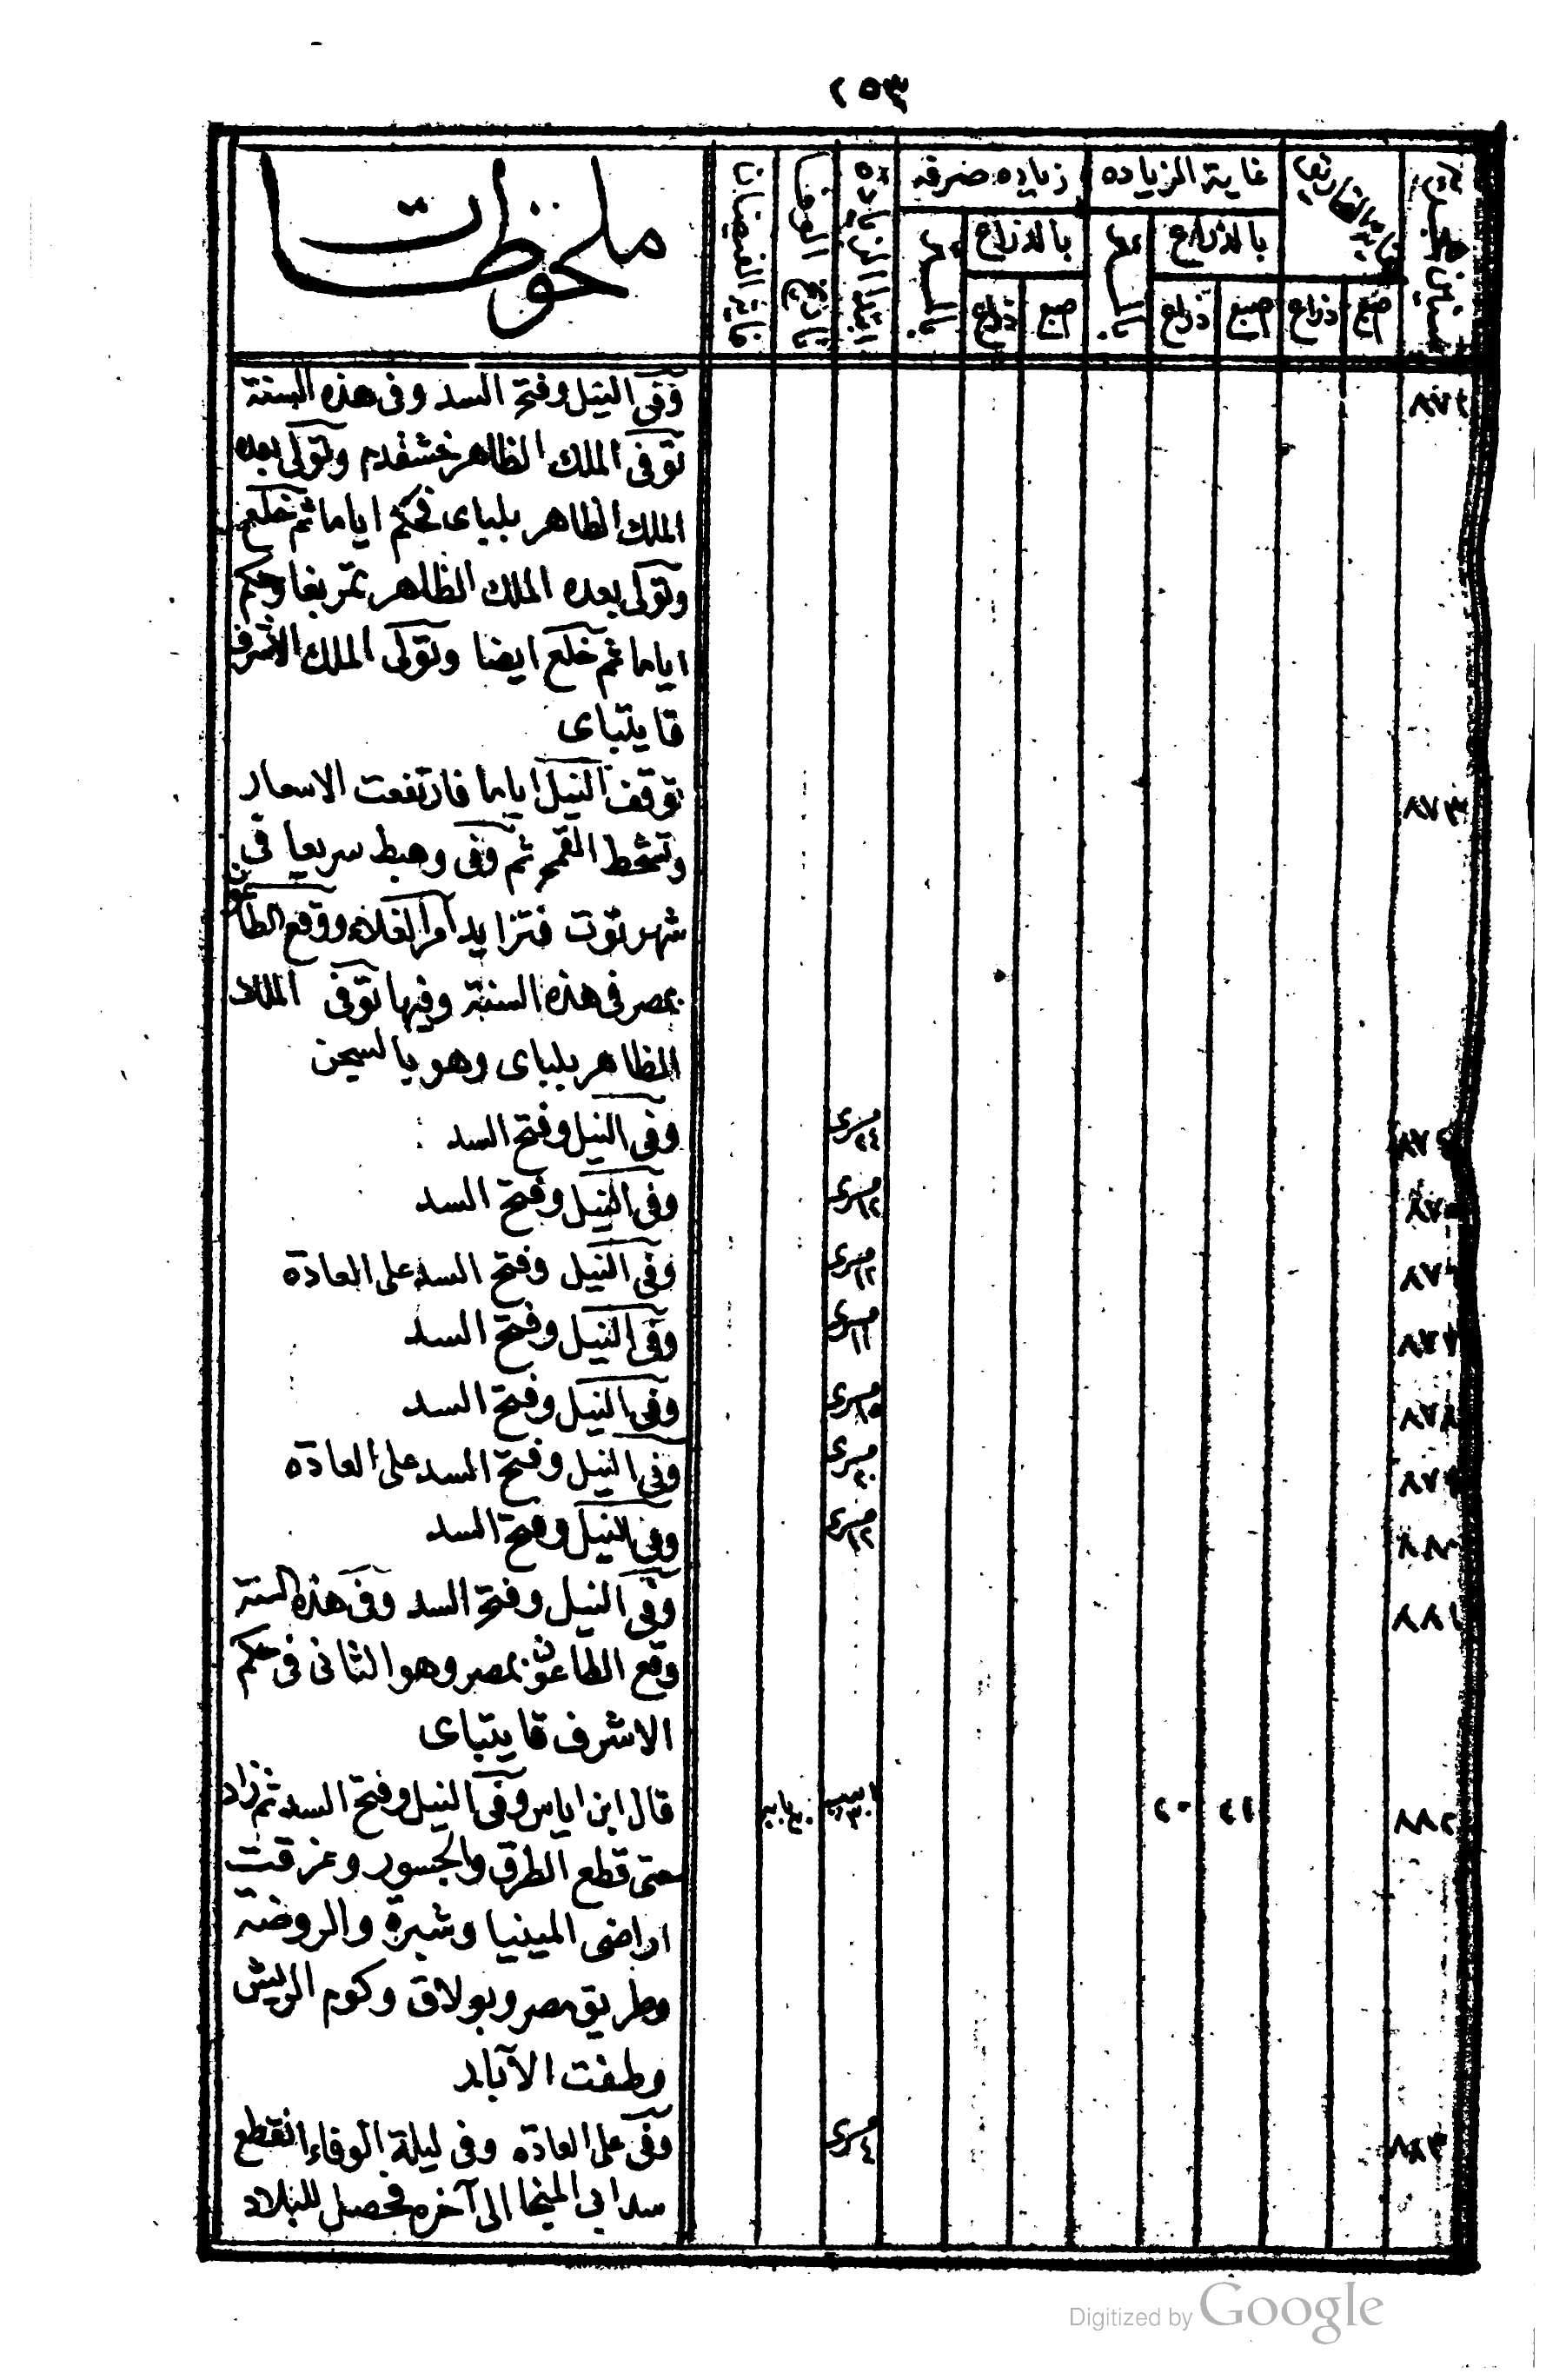 ٢٥٣
سنين هجرية
غاية الزيادة
زيادة صرفة
ابتدا الزيادة
تاريخ الوفا
غاية الفيضان
ملحوظات
بالذراع
بالذراع
اصبع ذراع اصبع ذراع اصبع ذراع
٨٧٢ وفى النيل وفتح السد وفى هذه السنة
توفى الملك الظاهر خشقدم وتولى بعده
الملك الظاهر بلباى فحكم اياما ثم خلع
وتولى بعده الملك الظاهر تمربغا وحكم
اياما ثم خلع ايضا وتولى الملك الاشرف
قايتباى
٨٧٣ توقف النيل اياما فارتفعت الاسعار
وتشحط القمح ثم وفى وهبط سريعا فى
شهر توت فتزايد امر الغلاء ووقع الطاعون
بمصر فى هذه السنة وفيها توفى الملك
الظاهر بلباى وهو بالسجن
٨٧٤ ٢٤ مسرى وفى النيل وفتح السد
٨٧٥ ١٢ مسرى وفى النيل وفتح السد
٨٧٦ ١٢ مسرى وفى النيل وفتح السد على العادة
٨٧٧ ١١ مسرى وفى النيل وفتح السد
٨٧٨ ١٥ مسرى وفى النيل وفتح السد
٨٧٩ ٢٠ مسرى وفى النيل وفتح السد على العادة
٨٨٠ ١٢ مسرى وفى النيل وفتح السد
٨٨١ وفى النيل وفتح السد وفى هذه السنة
وقع الطاعون بمصر وهو الثانى فى حكم
الاشرف قايتباى
٨٨٢ ٢٠ قال ابن اياس وفى النيل وفتح السد ثم زاد
حتى قطع الطرق والجسور وغرقت
اراضى المينيا وشبرة والروضة
وطريق مصر وبولاق وكوم الريش
وطفت الآبار
٨٨٣ ٤ مسرى وفى على العادة وفى ليلة الوفاء انقطع
سد ابى المنجا الى آخره فحصل للبلاد
Digitized by Google